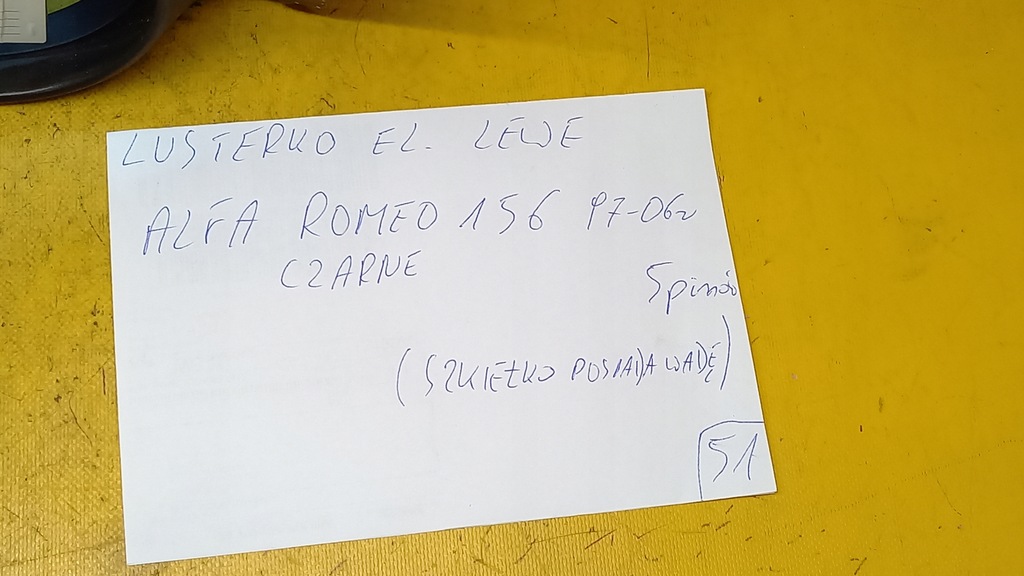 LUSTERKO EL. LEWE
ALFA ROMEO 156 97-06r
CZARNE
5 pinów
(SZKIEŁKO POSIADA WADĘ)
51